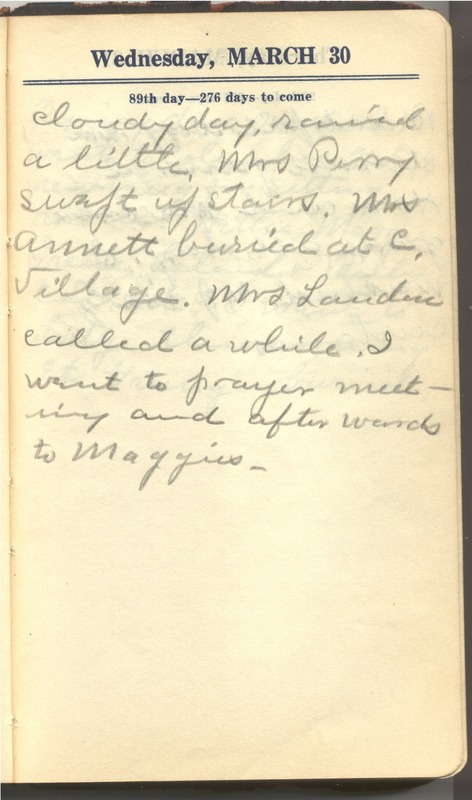 Wednesday, MARCH 30
89th day—276 days to come
cloudy day, rained
a little, Mrs Perry
swept up stairs. Mrs
Annett buried at C.
Village. Mrs Landen
called a while. I
went to prayer meet-
ing and after wards
to Maggies_